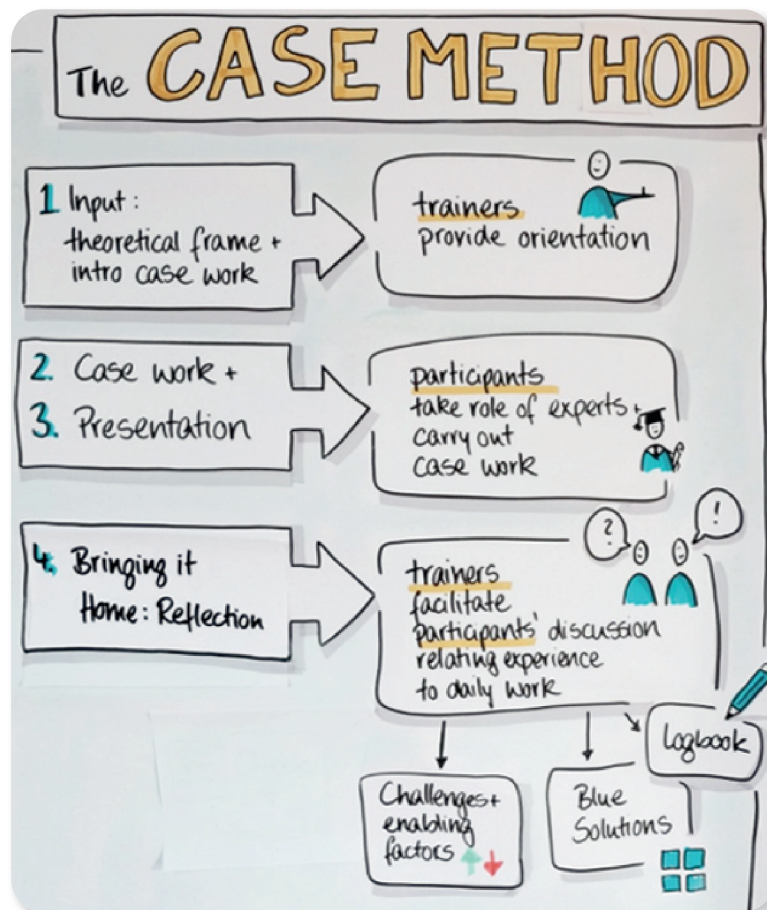 The CASE METHOD
1 Input:
theoretical frame +
intro case work
trainers
provide orientation
2. Case work +
3. Presentation
participants
take role of experts +
carry out
case work
4. Bringing it
Home: Reflection
? !
trainers
facilitate
participants' discussion
relating experience
to daily work
Logbook
Challenges +
enabling
factors
Blue
Solutions